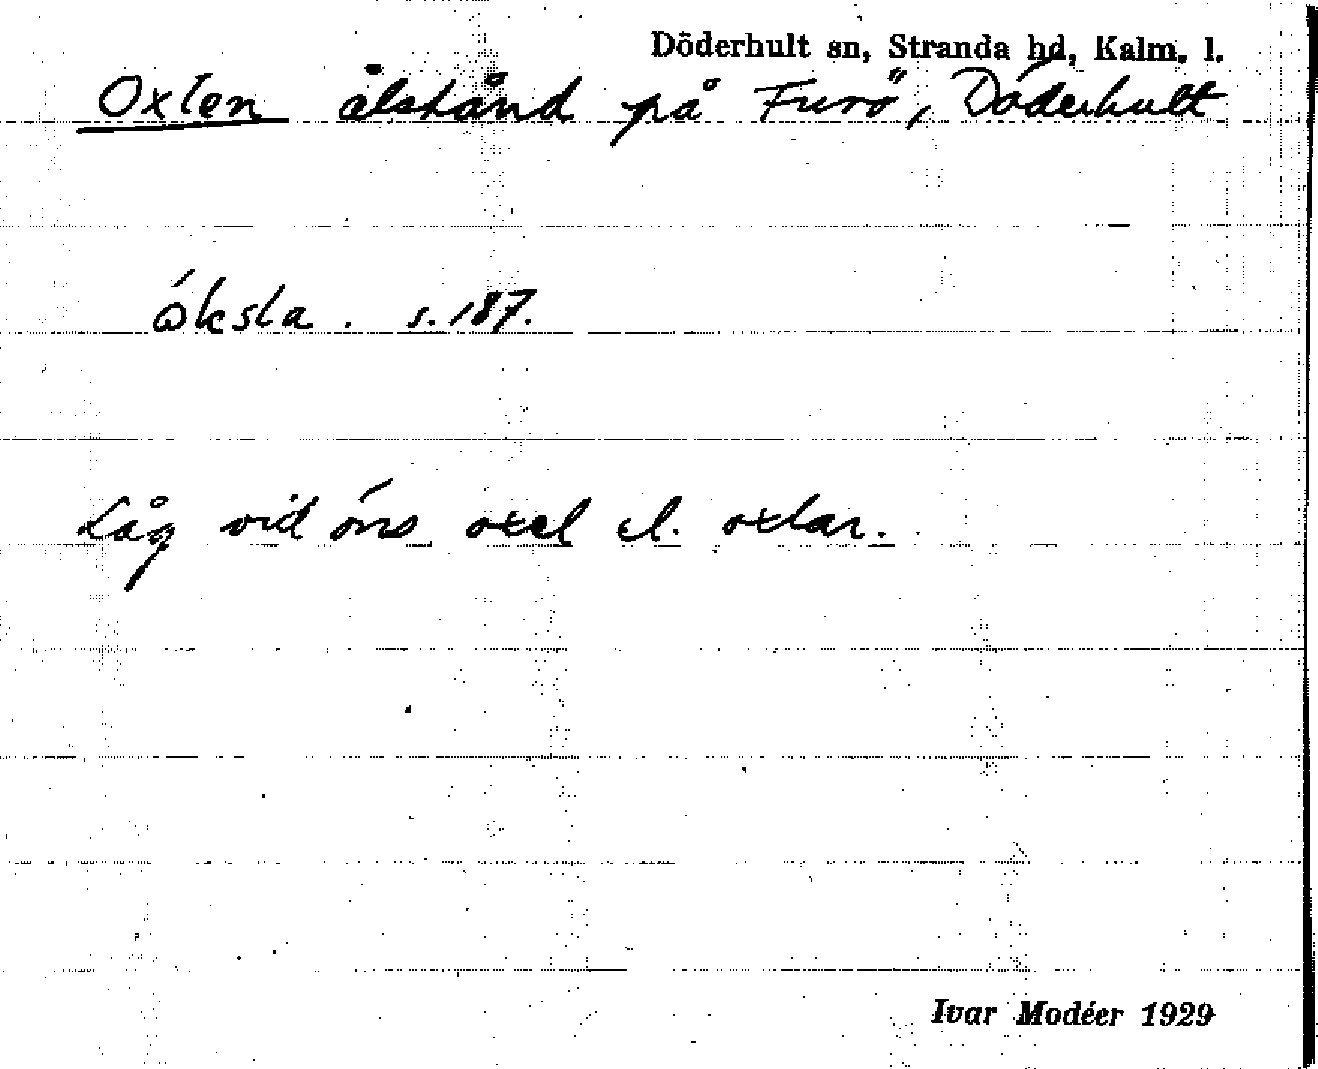 Döderhult sn, Stranda hd, Kalm. l.
Oxlen ålstånd på Furö, Döderhult
óksla. s. 187.
Låg vid öns oxel el. oxlar.
Ivar Modéer 1929